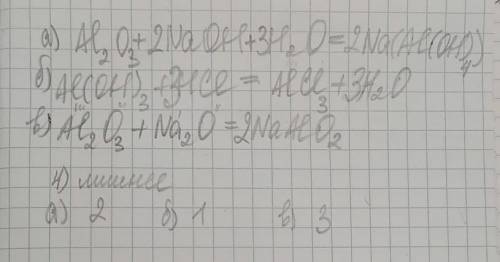 а) Al₂O₃+2NaOH+3H₂O=2Na(Al(OH)₄)
б) Al(OH)₃+3HCl = AlCl₃+3H₂O
в) Al₂O₃+Na₂O=2NaAlO₂
4) лишнее
а) 2 б) 1 в) 3